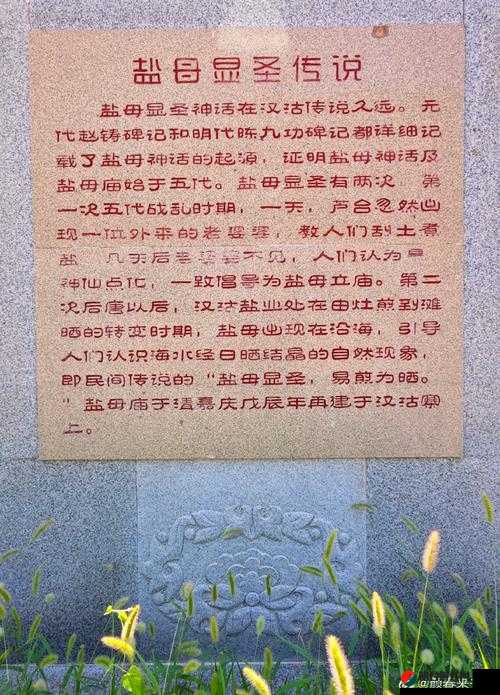 盐母显圣传说
盐母显圣神话在汉沽传说久远。元
代赵铸碑记和明代陈九功碑记都详细记
载了盐母神话的起源，证明盐母神话及
盐母庙始于五代。盐母显圣有两次，第
一次五代战乱时期，一天，芦台忽然出
现一位外来的老婆婆，教人们刮土煮
盐 几天后老婆婆不见，人们认为是
神仙点化，一致倡导为盐母立庙。第二
次后唐以后，汉沽盐业处在由灶煎到滩
晒的转变时期，盐母出现在沿海，引导
人们认识海水经日晒结晶的自然现象，
即民间传说的“盐母显圣，易煎为晒。
”盐母庙于清嘉庆戊辰年再建于汉沽寨
上。